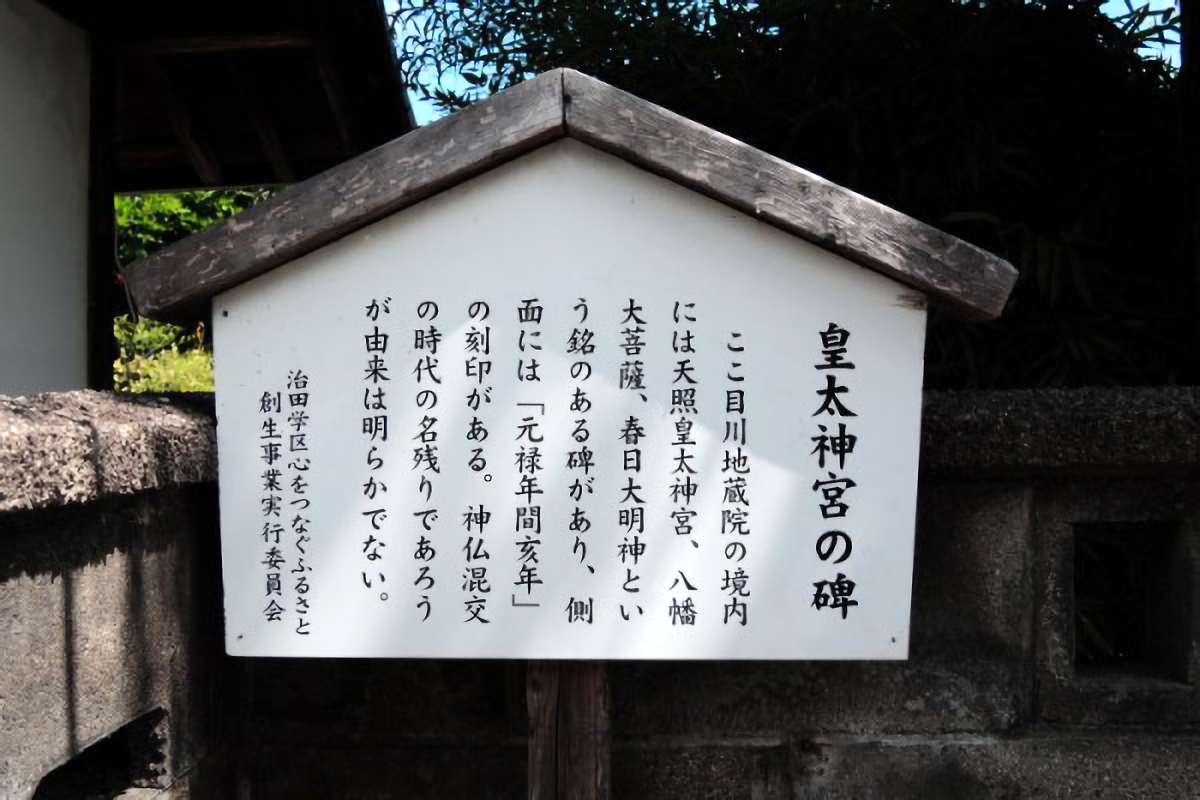 皇太神宮の碑
ここ目川地蔵院の境内
には天照皇太神宮、八幡
大菩薩、春日大明神とい
う銘のある碑があり、側
面には「元禄年間亥年」
の刻印がある。神仏混交
の時代の名残りであろう
が由来は明らかでない。
治田学区心をつなぐふるさと
創生事業実行委員会